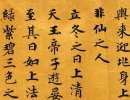 輿來迎地身上
非仙之人
立冬之日上清
天王帝子遊宴
至其日如上法
綠紫碧三色之